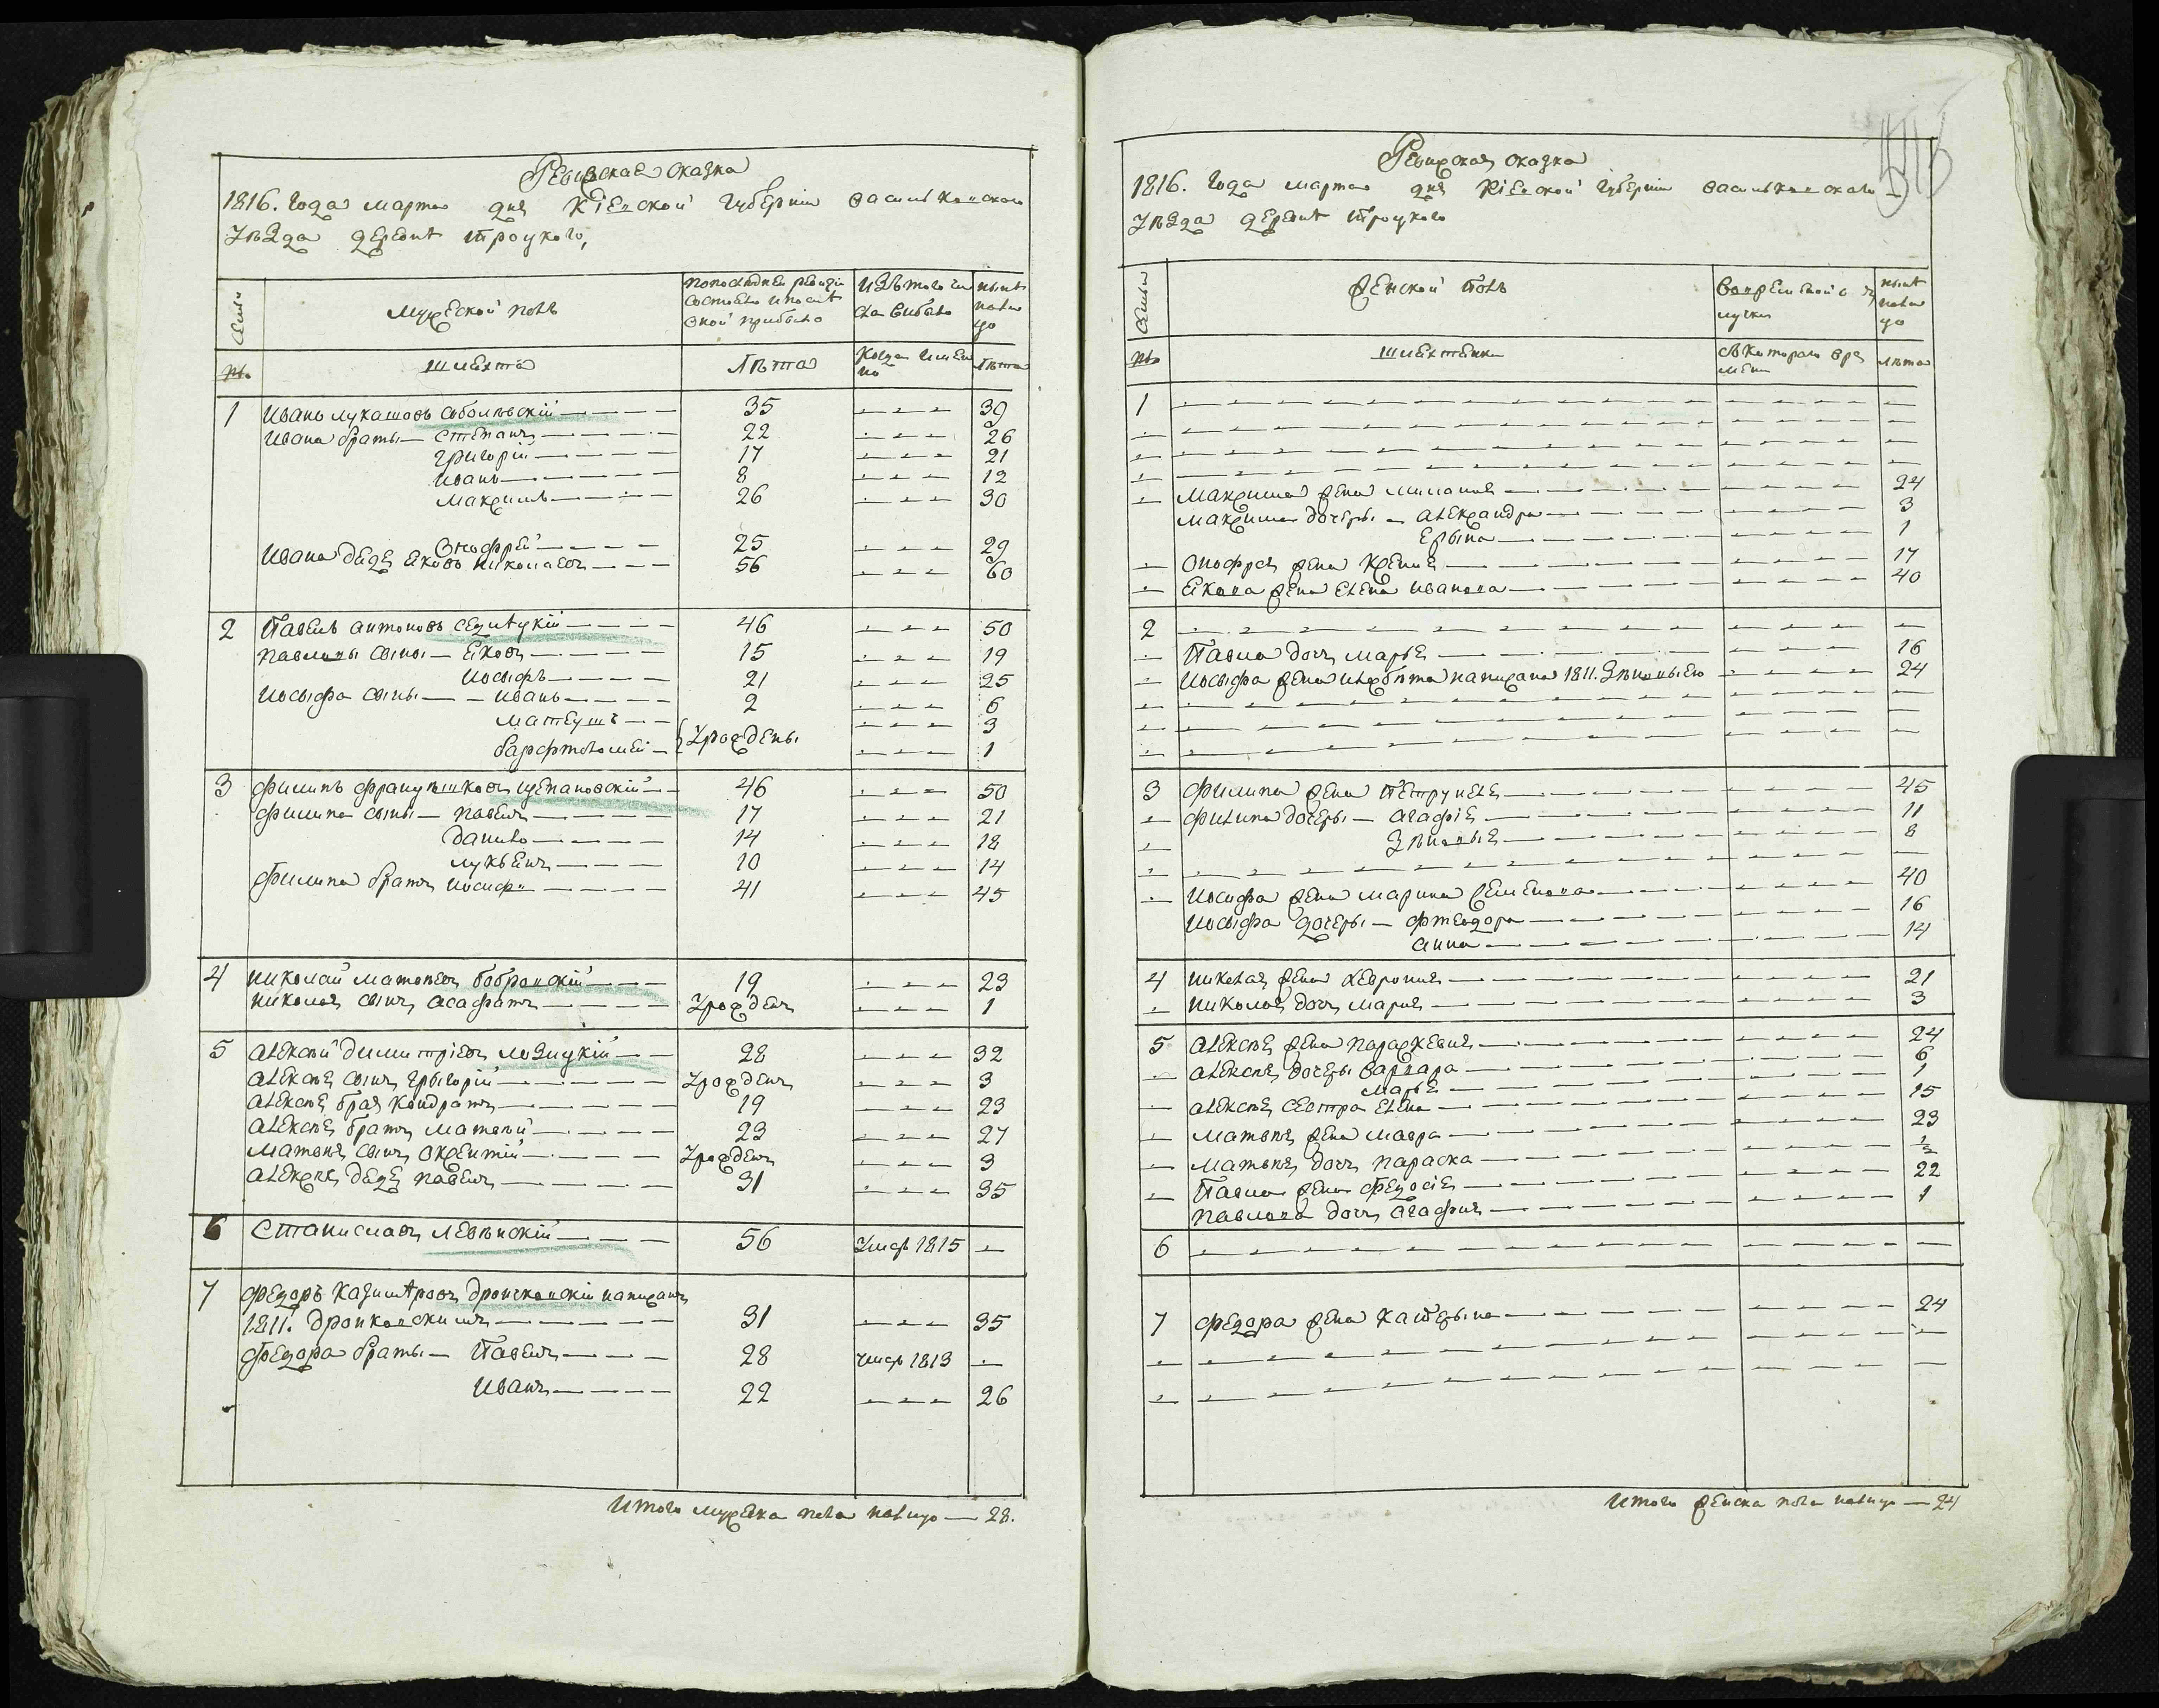 Ревизская сказка
1816. Года марта дня Кіевской губерніи васильковскаго
уѣзда деревнѣ Троцкого,
Семьи
Мужеской полъ
По последней ревизіи
состояло и после
оной прибыло
Изъ того чи
сла выбыло
нынѣ
на ли
цо
№
шляхта
Лѣта
Когда имен
но
Лѣта
1 Иванъ лукашовъ 35 - - - 39
Ивана браты — Степанъ 22 - - - 26
Григорій 17 - - - 21
Иванъ 8 - - - 12
Максимъ 26 - - - 30
Онофрей 25 - - - 29
Ивана дядя Яковъ Николаевъ 56 - - - 60
2 Павелъ антоновъ 46 - - - 50
Павловы сыны — Яковъ 15 - - - 19
Иосыфъ 21 - - - 25
Иосыфа сыны — Иванъ 2 - - - 6
Матеушъ - - - 3
Варфтоломей Урождены - - - 1
3 Филипъ францышковъ цепановскій 46 - - - 50
Филипа сыны — Павелъ 17 - - - 21
Данило 14 - - - 18
лукьянъ 10 - - - 14
Филипа братъ Иосифъ 41 - - - 45
4 Николай матвѣевъ бобровскій 19 - - - 23
Николая сынъ Асафатъ Урожденъ - - - 1
5 Алексѣй димитріевъ лозицкій 28 - - - 32
Алексѣя сынъ Грыгорій Урожденъ - - - 3
Алексѣя брат Кондратъ 19 - - - 23
Алексѣя братъ Матвѣй 23 - - - 27
Матвѣя сынъ Оксентій Урожденъ - - - 3
Алексѣя дядя Павелъ 31 - - - 35
6 Станиславъ 56 Умеръ 1815 —
7 Федоръ Казимѣровъ дрончковскій написанъ
1811. дронковскимъ 31 - - - 35
Федора браты — Павелъ 28 умеръ 1813 —
Иванъ 22 - - - 26
Итого мужеска пола налицо — 28.
Ревизская сказка
1816. Года марта дня Кіевской губерніи васильковскаго
уѣзда деревнѣ Троцкого
Семьи
Женской полъ
Во временной о
лучки
нынѣ
нали
цо
№
шляхтянки
Съ котораго вре
мени
Лѣта
1
Максима жена Миланія 24
Максима дочеры — Александра 3
Ерына 1
Онофрея жена Ксения 17
Якова жена Елена Иванова 40
2
Павла дочь Марья 16
Иосыфа жена написана 1811. Зѣновьею 24
3 Филипа жена Петрунеля 45
Филипа дочеры — Агафія 11
Зѣновья 8
Иосифа жена Марина Семенова 40
Иосыфа дочеры — Фтеодора 16
Анна 14
4 Николая жена Хевронія 21
Николая дочь Мария 3
5 Алексѣя жена ПарасKевия 24
Алексѣя дочеры Варвара 6
Марья 1
Алексѣя сестра Елена 15
Матвѣя жена Мавра 23
Матвѣя дочь Параска 1/2
Павла жена Федосія 22
Павлова дочь Агафия 1
6
7 Федора жена Катерына 24
Итого женска пола налицо — 24